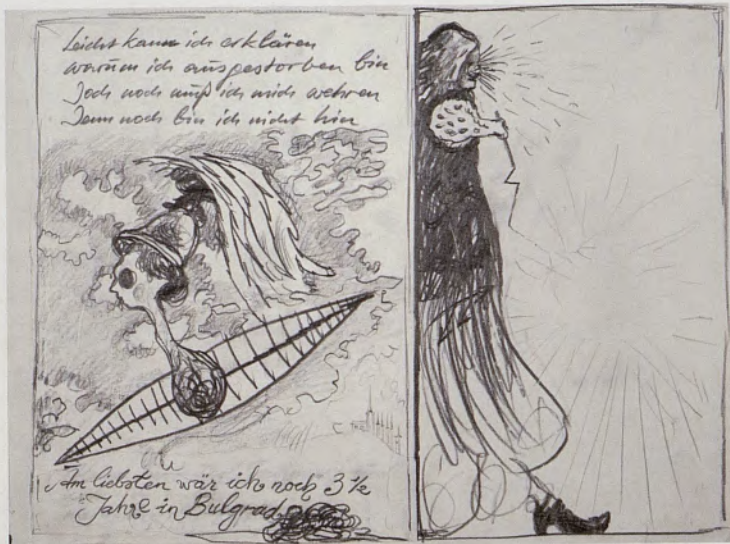 Leicht kann ich erklären
warum ich ausgestorben bin
Doch noch muß ich mich wehren
Denn noch bin ich nicht hin
Am liebsten wär ich noch 3 ½
Jahre in Bulgrad